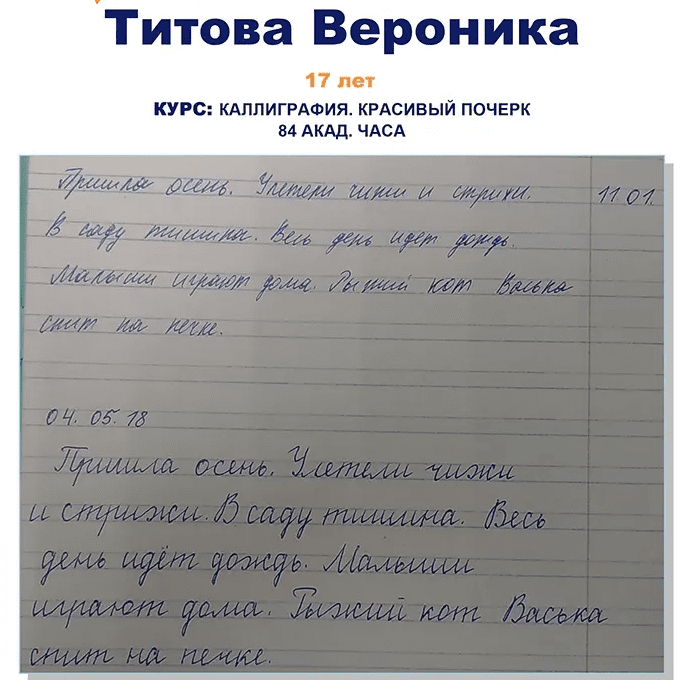 Титова Вероника
17 лет
КУРС: КАЛЛИГРАФИЯ. КРАСИВЫЙ ПОЧЕРК
84 АКАД. ЧАСА
Пришла осень. Улетели чижи и стрижи. 11.01.
В саду тишина. Весь день идет дождь.
Малыши играют дома. Рыжий кот Васька
спит на печке.
04.05.18
Пришла осень. Улетели чижи
и стрижи. В саду тишина. Весь
день идёт дождь. Малыши
играют дома. Рыжий кот Васька
спит на печке.